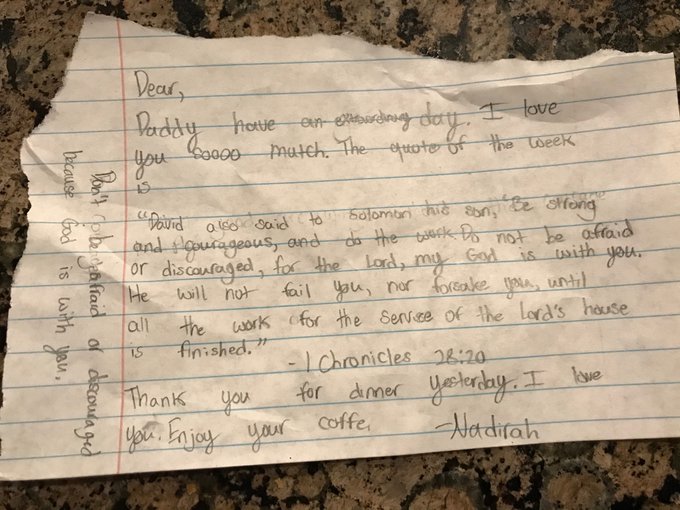 Dear,
Daddy have an extraordinary day. I love
you soooo mutch. The quote of the week
is
"David also said to Solomon his son, "Be strong"
and courageous, and do the work. Do not be afraid
or discouraged, for the Lord, my God is with you.
He will not fail you, nor forsake you, until
all the work for the service of the Lord's house
is finished."
- 1 Chronicles 28:20
Thank you for dinner yesterday. I love
you. Enjoy your coffe,
-Nadirah
Don't be afraid or discouraged
because God is with you.